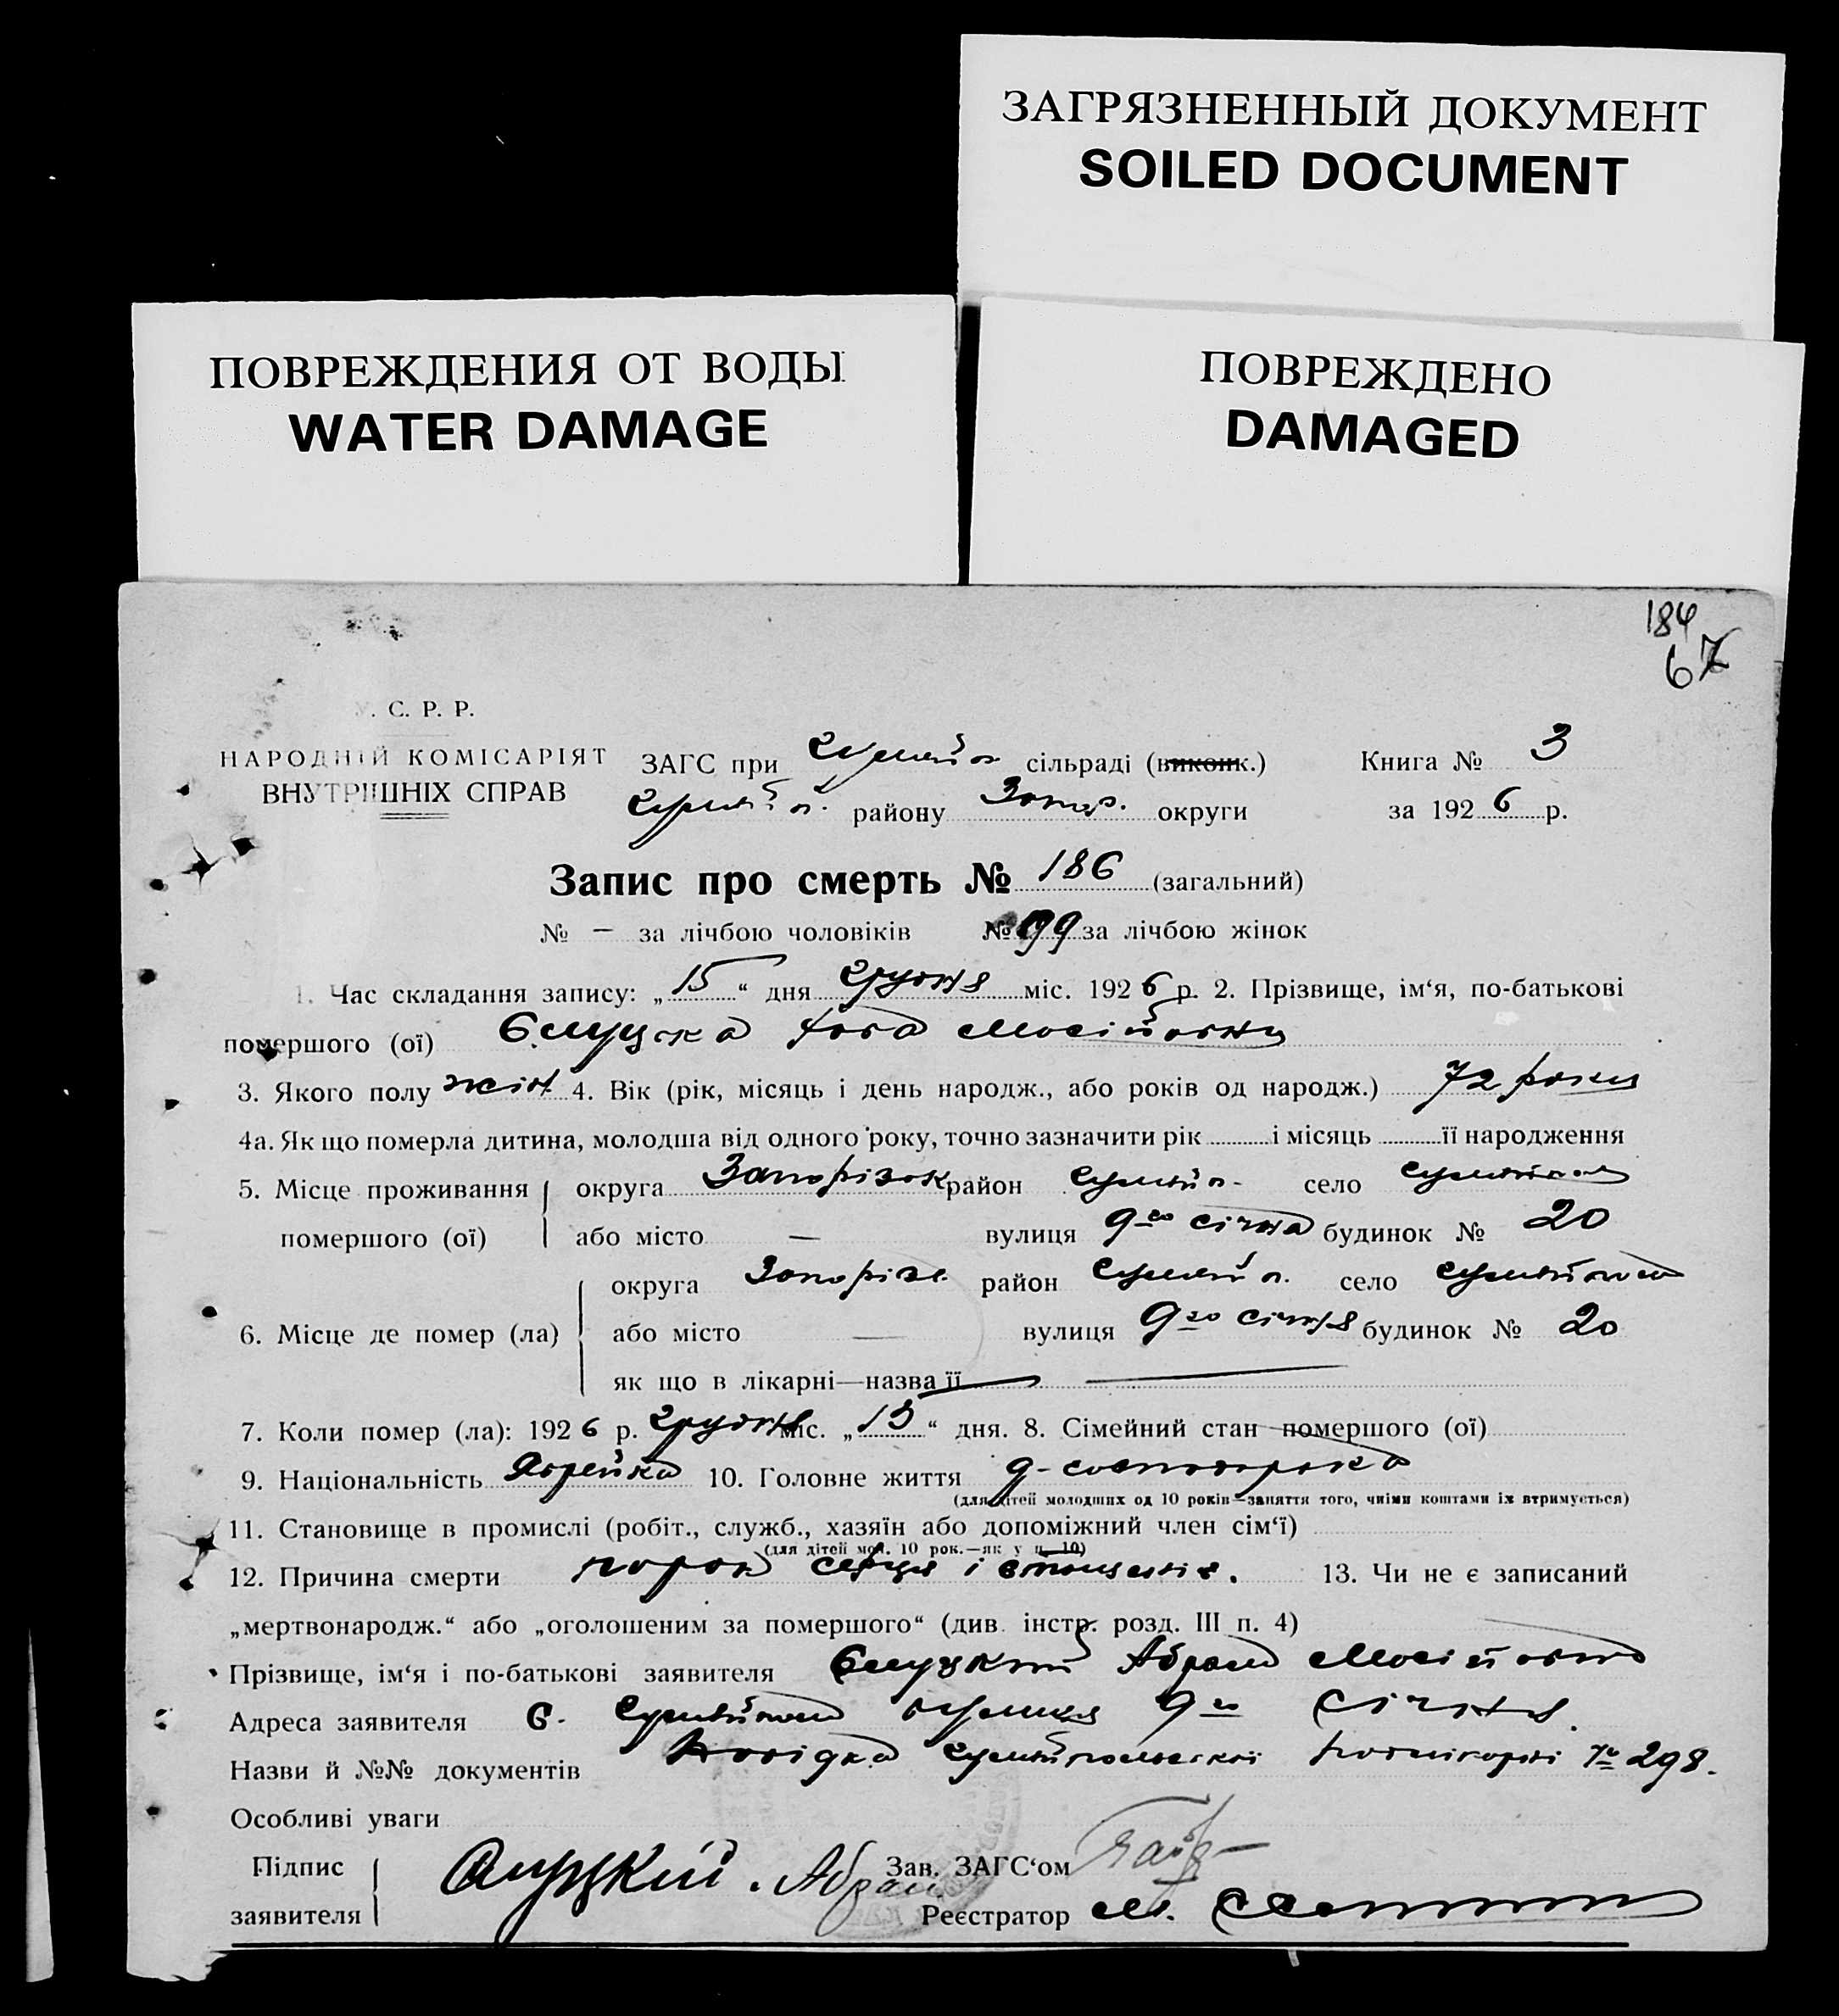 ЗАГРЯЗНЕННЫЙ ДОКУМЕНТ
SOILED DOCUMENT
ПОВРЕЖДЕНИЯ ОТ ВОДЫ
WATER DAMAGE
ПОВРЕЖДЕНО
DAMAGED
184
67
У. С. Р. Р.
НАРОДНІЙ КОМІСАРІЯТ
ВНУТРІШНІХ СПРАВ
ЗАГС при сільраді (виконк.) Книга № 3
району Запор. округи за 1926 р.
Запис про смерть № 186 (загальний)
№ — за лічбою чоловіків № 99 за лічбою жінок
1. Час складання запису: „15“ дня грудня міс. 1926 р. 2. Прізвище, ім‘я, по-батькові
помершого (ої) Слуцка Мосійовна
3. Якого полу жін. 4. Вік (рік, місяць і день народж., або років од народж.) 72 роки
4а. Як що померла дитина, молодша від одного року, точно зазначити рік і місяць її народження
5. Місце проживання помершого (ої) округа Запорізьк район село
або місто — вулиця 9го січня будинок № 20
6. Місце де помер (ла) округа Запорізьк. район село
або місто — вулиця 9го січня будинок № 20
як що в лікарні—назва її —
7. Коли помер (ла): 1926 р. грудня міс. „13“ дня. 8. Сімейний стан помершого (ої)
9. Національність Яврейка 10. Головне життя д-господарка
(для дітей молодших од 10 років—заняття того, чиїми коштами їх втримується)
11. Становище в промислі (робіт., служб., хазяїн або допоміжний член сім‘ї)
(для дітей мол. 10 рок.—як у п. 10)
12. Причина смерти порок серця і 13. Чи не є записаний
„мертвонародж.“ або „оголошеним за помершого“ (див. інстр. розд. III п. 4)
Прізвище, ім‘я і по-батькові заявителя Слуцкий Абрам Мосійович
Адреса заявителя С. вулиця 9го Січня.
Назви й №№ документів Довідка № 298.
Особливі уваги
Підпис заявителя Слуцкій. Абрам
Зав. ЗАГС‘ом
Реєстратор М.